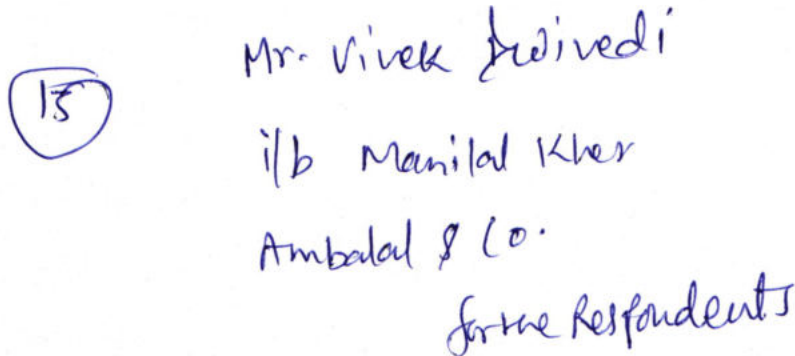 15
Mr. Vivek Dwivedi
i/b Manilal Kher
Ambalal & Co.
for the Respondents